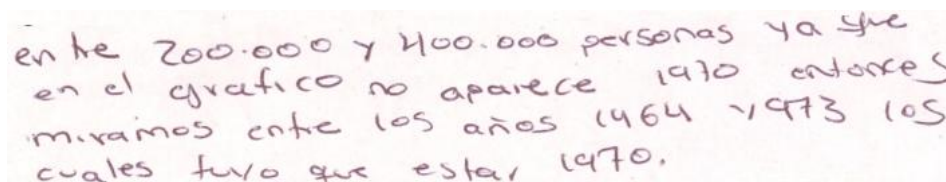 entre 200.000 y 400.000 personas ya que
en el grafico no aparece 1970 entonces
miramos entre los años 1964 y 1973 los
cuales tuvo que estar 1970.